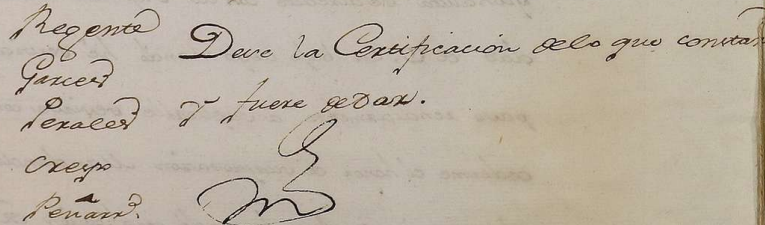 Regente
Garces
Perales
Crespo
Peñarr.ª
Deve la Certificacion delo que constar
y fuere de Dar.